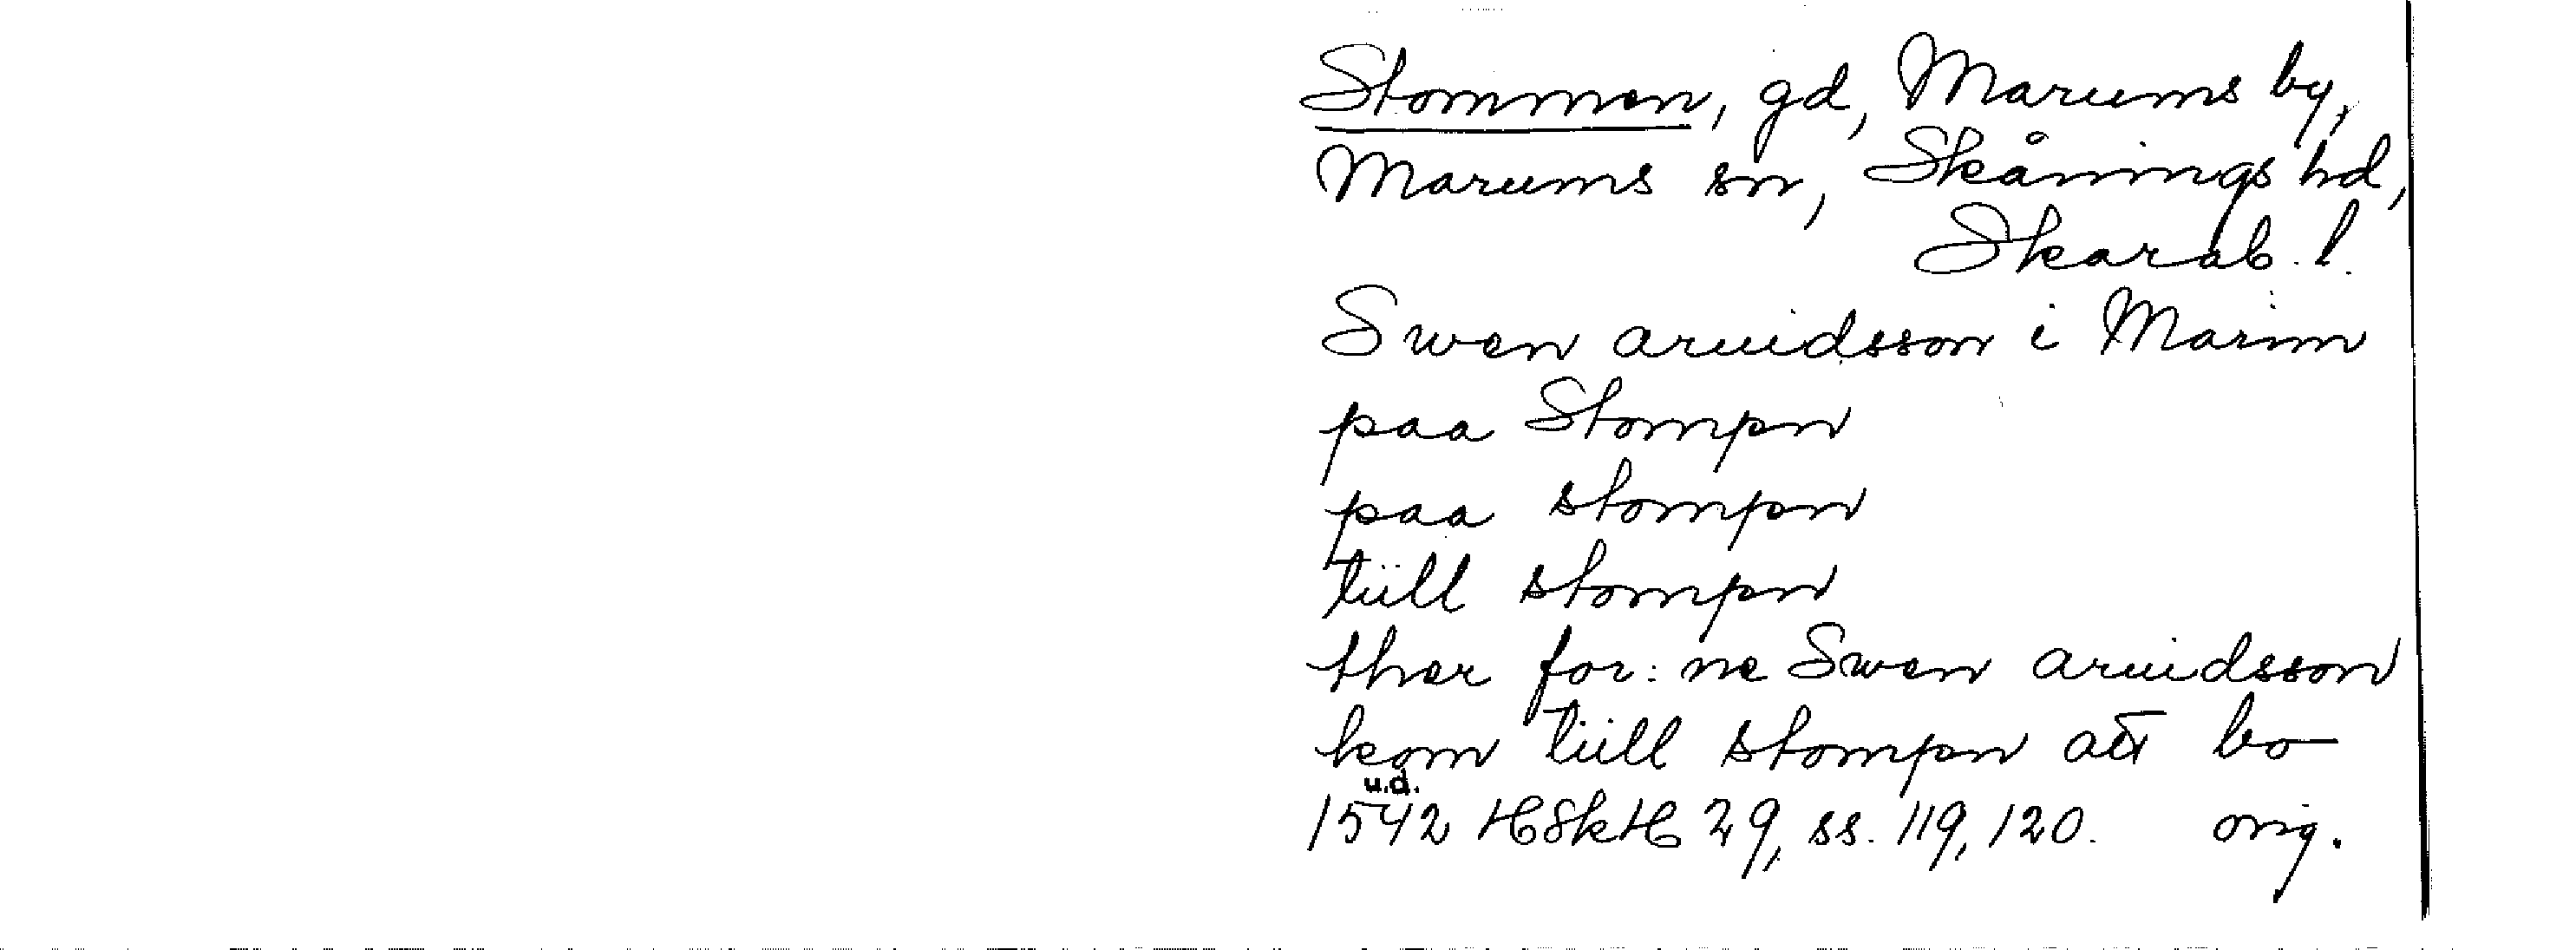 Stommen, gd, Marums by,
Marums sn, Skånings hd,
Skarab. l.
Swen aruidsson i Marim
paa Stompn
paa stompn
tiill stompn
ther for: ne Swen aruidsson
kom tiill stompn att bo
u.d.
1542 HSkH 29, ss. 119, 120. orig.